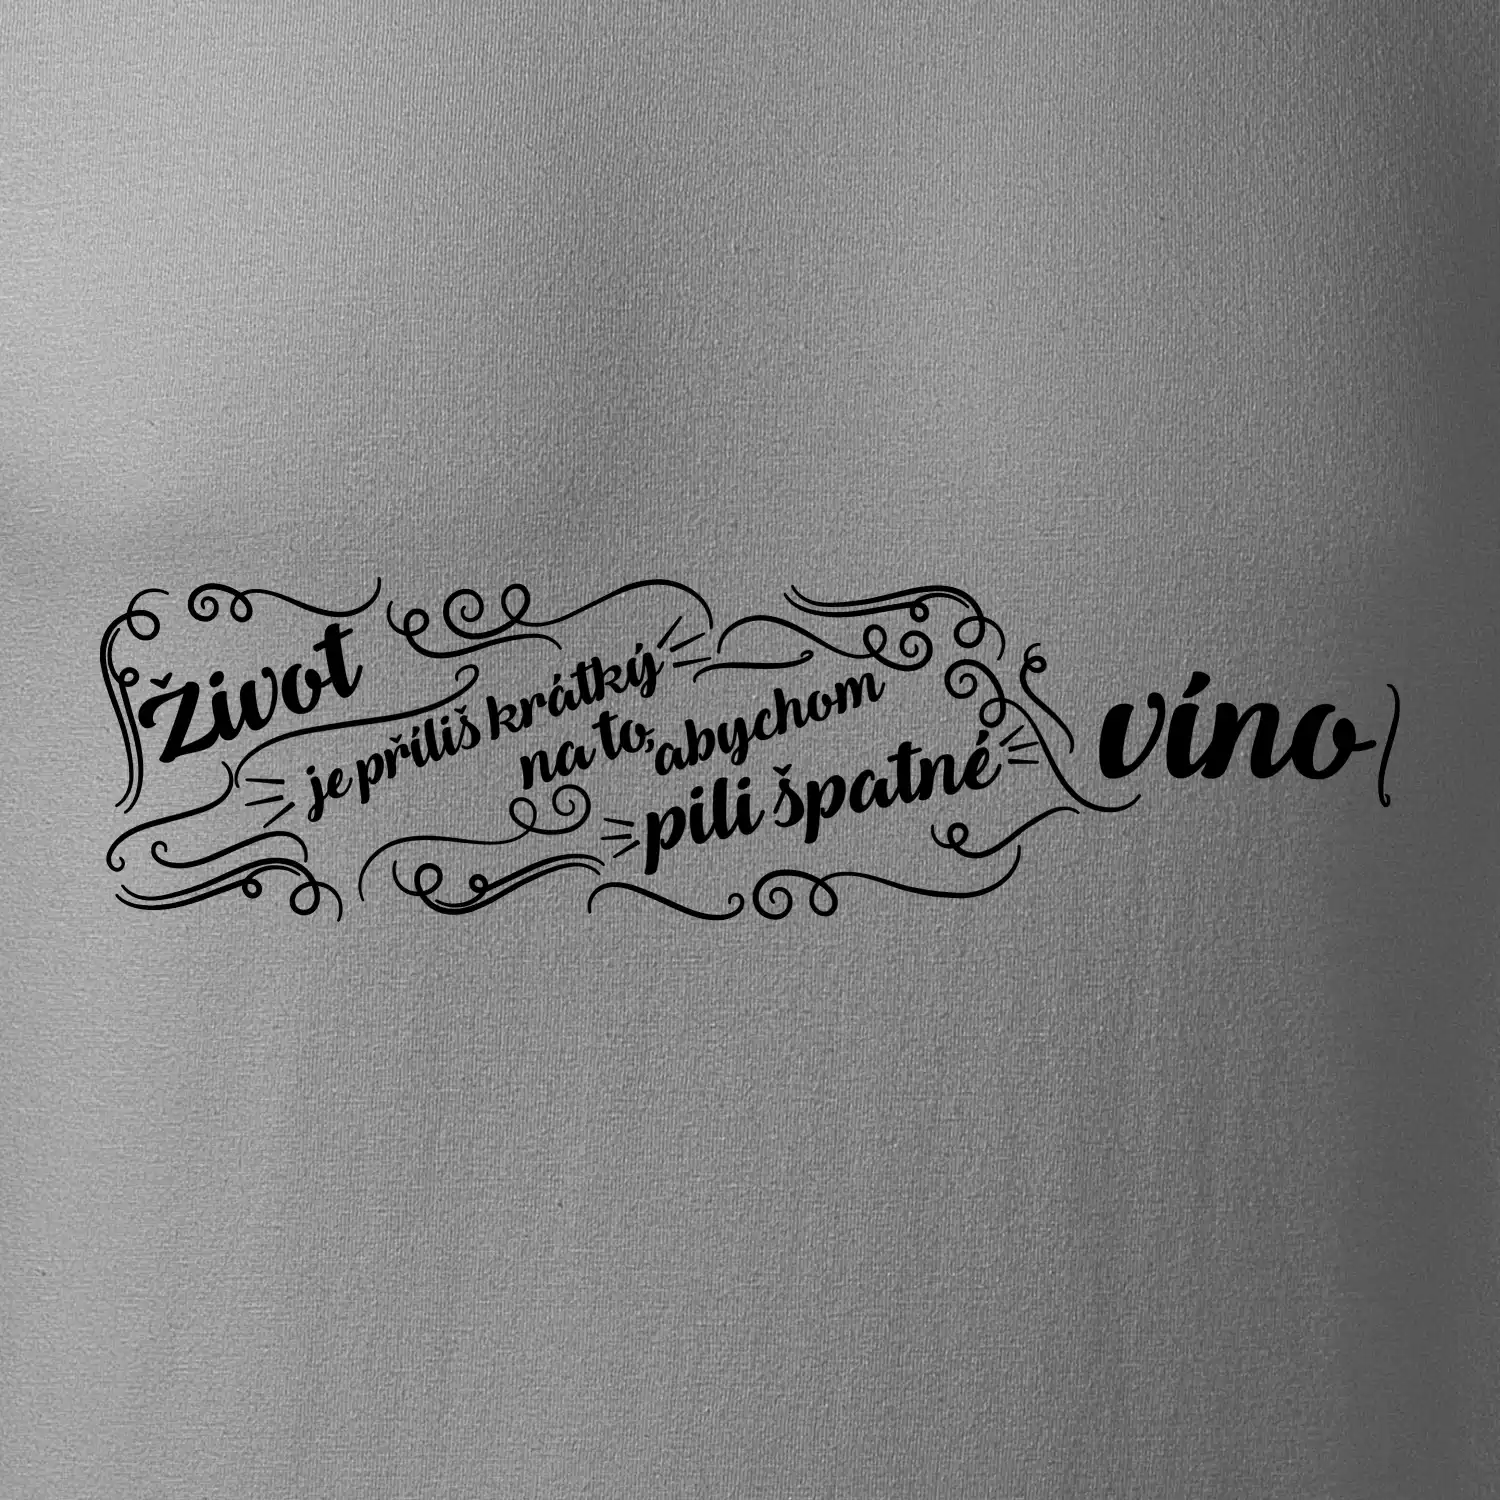 Život
je příliš krátký
na to, abychom
pili špatné
víno